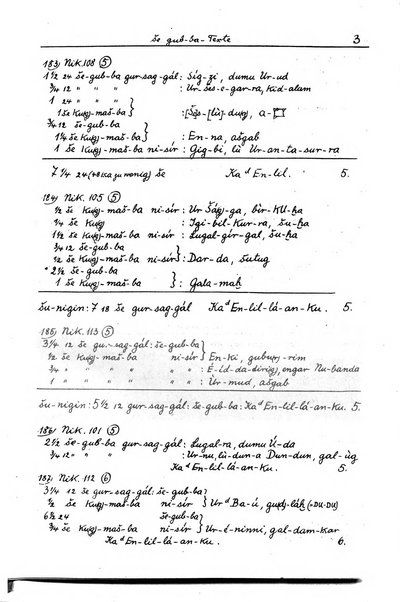 še gub-ba-Texte 3
183) Nik. 108 (5)
1 1/2 24 še-gub-ba gur-sag-gál: Sig-zi, dumu Ur-ud
3/4 12 " " " : Ur-šeš-e-gar-ra, kid-alam
1 24 " " }
1 še -maš-ba } a-
3/4 12 še-gub-ba }
1 1/4 še -maš-ba } : En-na, ašgab
1 še -maš-ba ni-sír: Gig-bi, lù Ur-an-ta-sur-ra
7 1/4 24 zu wenig) še Ka d En-líl. 5.
184) Nik. 105 (5)
1/2 še -maš-ba ni-sír: Ur
1/4 še : Igi-bil-Kur-ra, šu-ḫa
1 1/2 še -maš-ba ni-sír: Lugal-gír-gal, šu-ḫa
3/4 12 še-gub-ba }
1/2 še -maš-ba ni-sír } : Dar-da, šutug
* 2 1/2 še-gub-ba }
1 še -maš-ba } : Gala-maḫ
šu-nigin: 7 18 še gur-sag-gál Ka d En-líl-lá-an-ku. 5.
185) Nik. 113 (5)
3 1/4 12 še gur-sag-gál: še-gub-ba }
1/2 še -maš-ba ni-sír } En-ki, -rim
3/4 " " " " " : É-íd-da-dirig, engar Nu-banda
1 " " " " " : Ùr-mud, ašgab
šu-nigin: 5 1/2 12 gur-sag-gál: še-gub-ba: Ka d En-líl-lá-an-ku. 5.
186) Nik. 101 (5)
2 1/2 še-gub-ba gur-sag-gál: Lugal-ra, dumu Ú-da
3/4 12 " " : Ur-nu, lù-dun-a Dun-dun, gal-ùg
Ka d En-líl-lá-an-ku. 5.
187) Nik. 112 (6)
3 1/4 12 še gur-sag-gál: še-gub-ba }
1/2 še -maš-ba ni-sír } Ur d Ba-ú, (=DU-DU)
6 1/2 24 še-gub-ba }
3/4 še -maš-ba ni-sír } Ur-é-ninni, gal-dam-kar
Ka d En-líl-lá-an-ku. 6.